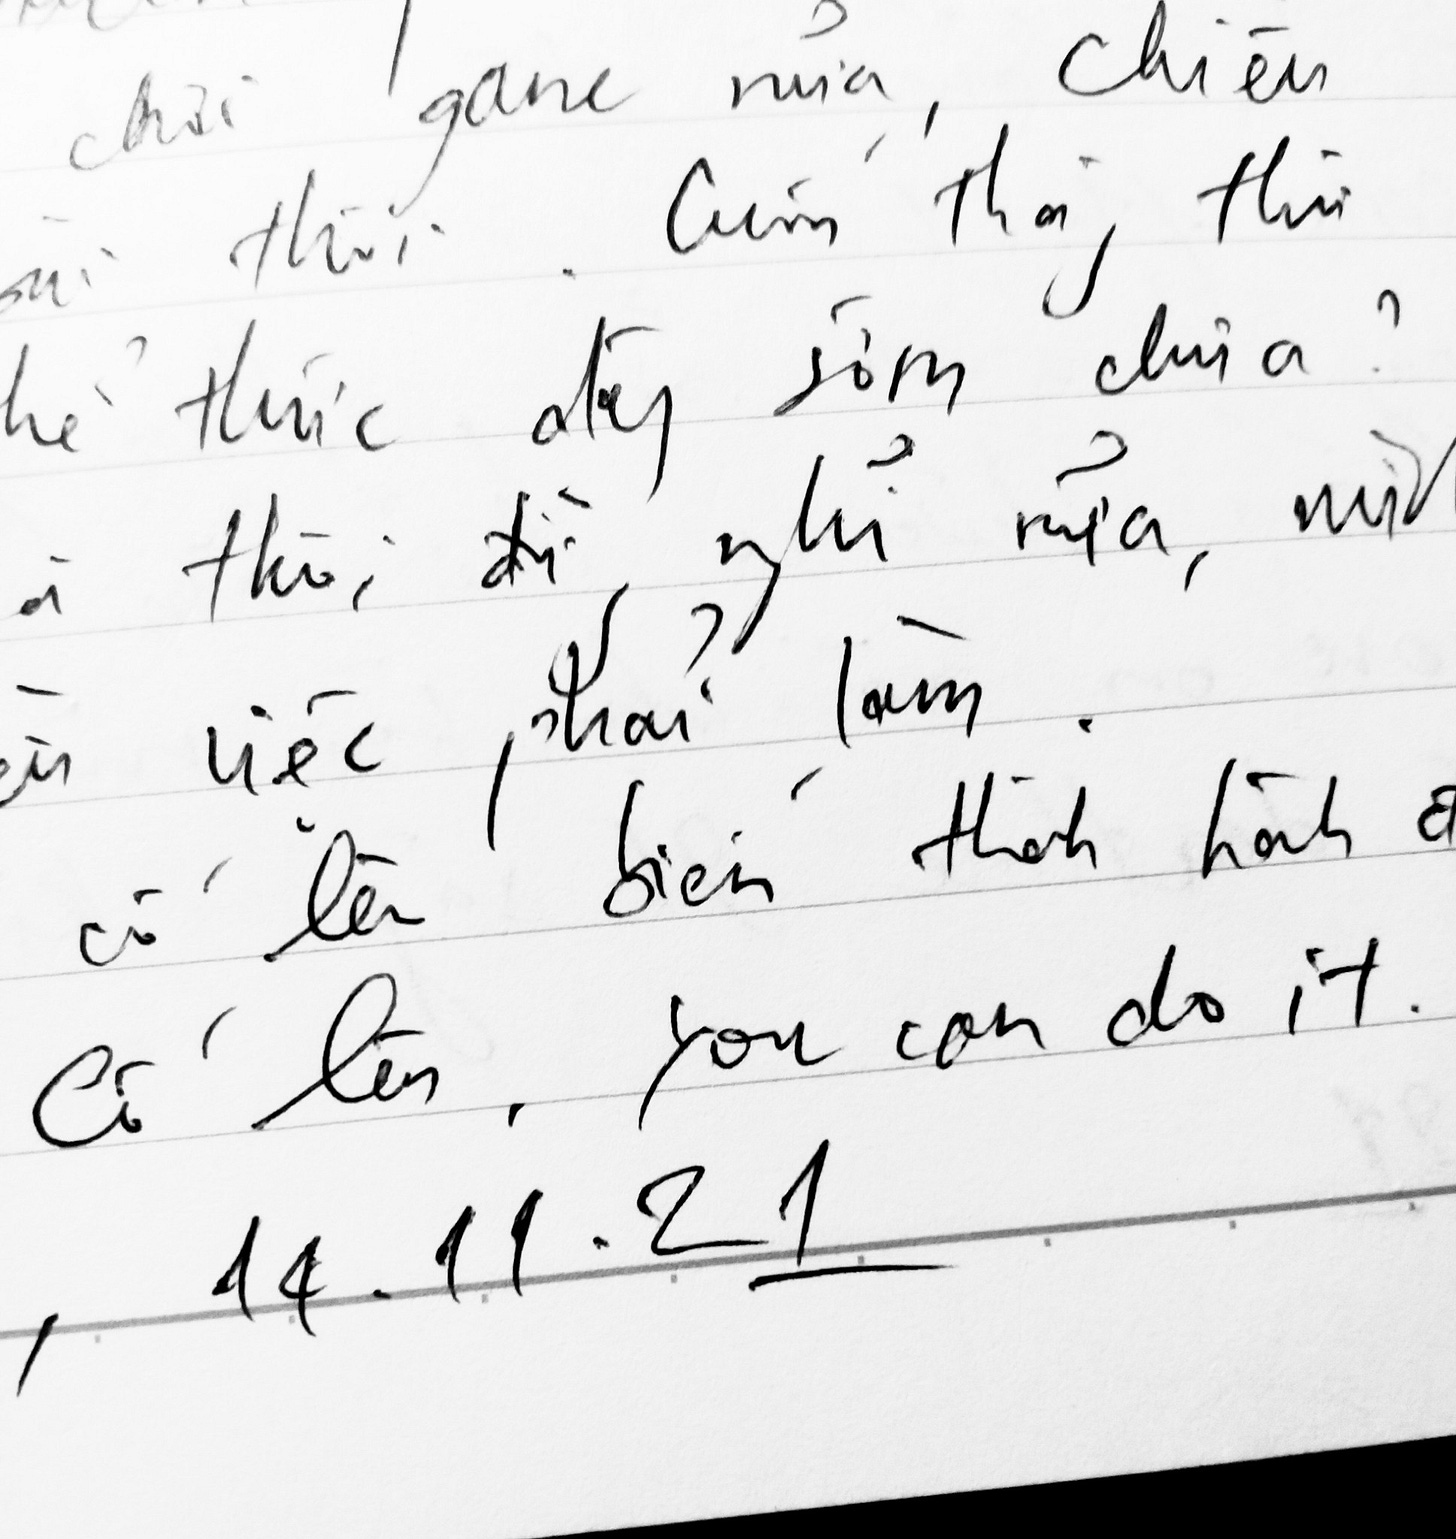 chơi game nữa, chiều
thôi. Cuối tháng thi
thế thức dậy sớm chưa?
thôi đi, nghỉ nữa, mình
việc phải làm.
cố lên biến thành hành
Cố lên, you can do it.
, 14.11.21